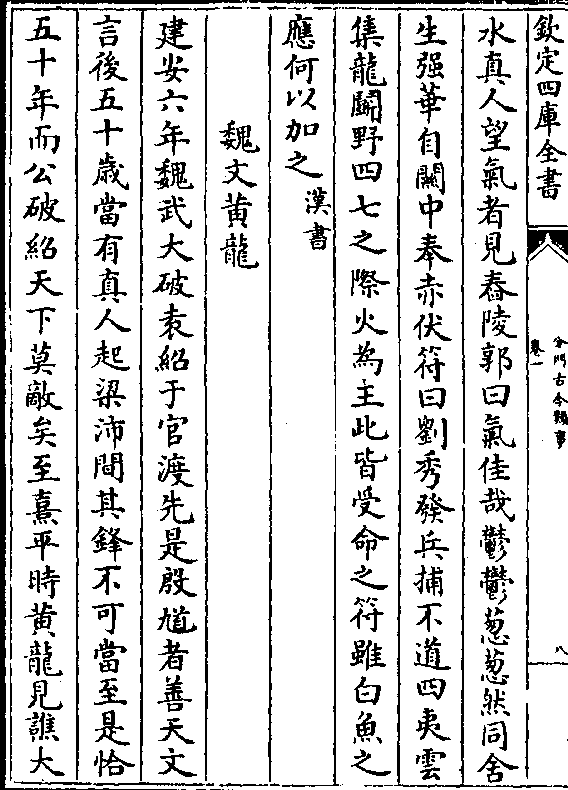 欽定四庫全書
分門古今類事
卷一
八
水真人望氣者見舂陵郭曰氣佳哉鬱鬱葱葱然同舍
生强華自關中奉赤伏符曰劉秀發兵捕不道四夷雲
集龍鬭野四七之際火為主此皆受命之符雖白魚之
應何以加之 漢書
魏文黄龍
建安六年魏武大破袁紹于官渡先是殷馗者善天文
言後五十歲當有真人起梁沛間其鋒不可當至是恰
五十年而公破紹天下莫敵矣至熹平時黄龍見譙大